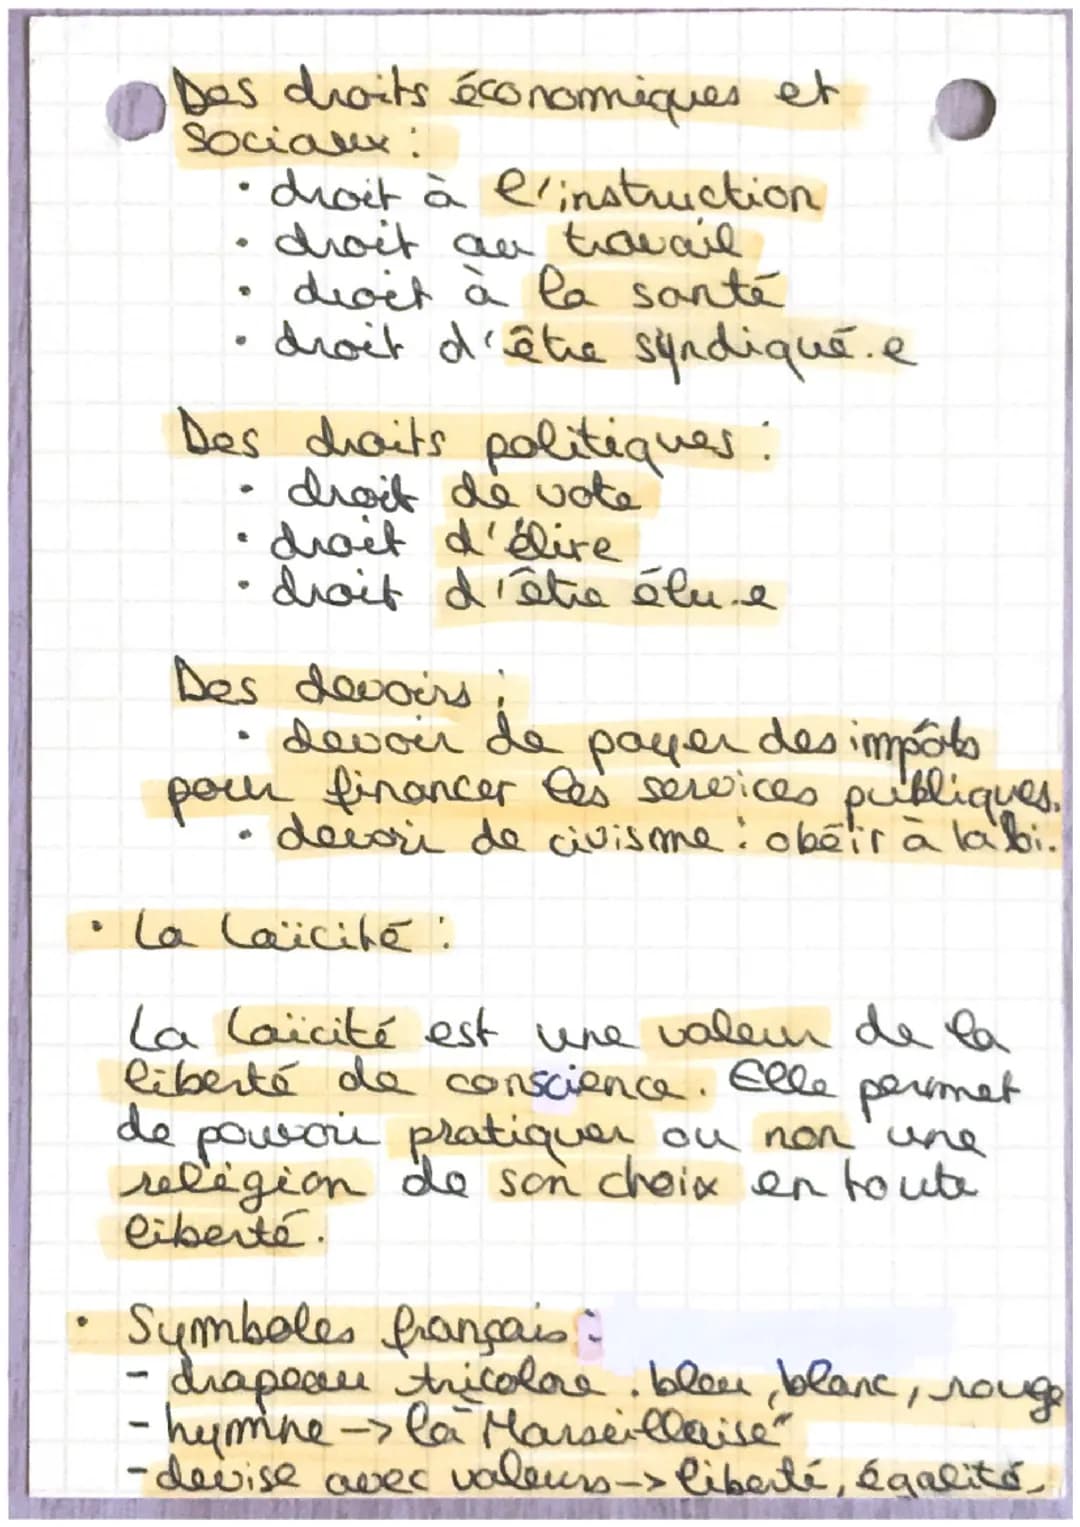 Des droits économiques et
sociaux :
• droit à l'instruction
• droit au travail
• droit à la santé
• droit d'être syndiqué.e
Des droits politiques :
• droit de vote
• droit d'élire
• droit d'être élu.e
Des devoirs :
• devoir de payer des impôts
pour financer les services publiques.
• devoir de civisme : obéir à la loi.
• La laïcité :
La laïcité est une valeur de la
liberté de conscience. Elle permet
de pouvoir pratiquer ou non une
religion de son choix en toute
liberté.
• Symboles français :
- drapeau tricolore . bleu, blanc, rouge
- hymne -> la "Marseillaise"
- devise avec valeurs -> liberté, égalité,